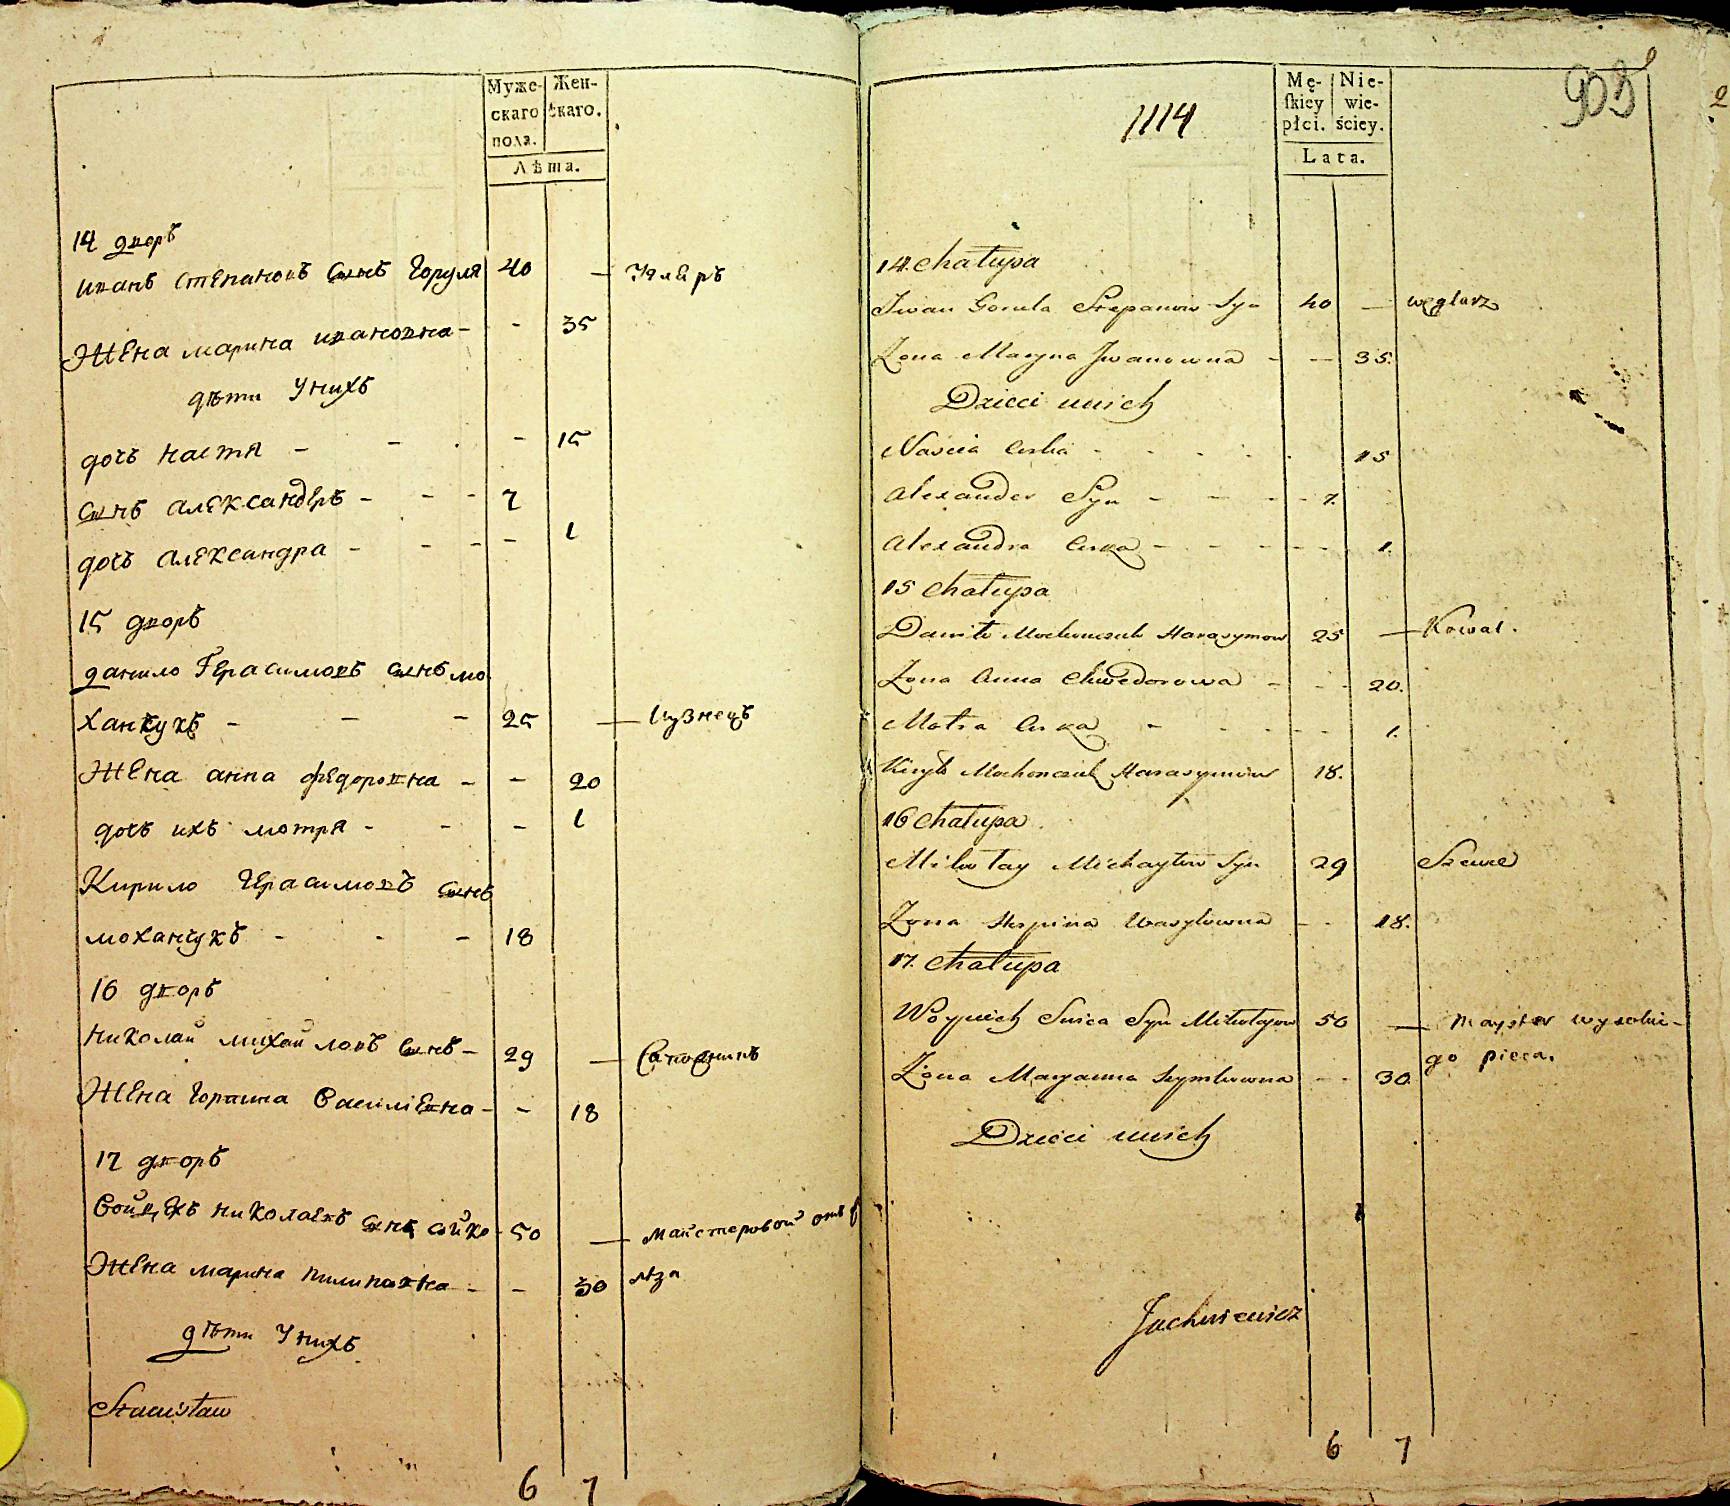 Муже-
скаго
пола.
Жен-
скаго.
Лѣта.
14 дворъ
иванъ степановъ сынъ Горуля 40 — Углеръ
Жена марина ивановна - - 35
дѣти Унихъ
дочь настя - - - 15
сынъ александеръ - - - 7
дочь александра - - - - 1
15 дворъ
данило Герасимовъ сынъ мо
ханчукъ - - - 25 — кузнецъ
Жена анна федоровна - - 20
дочь ихъ мотря - - - 1
Кирило Герасимовъ сынъ
моханчукъ - - - 18
16 дворъ
николай михайловъ сынъ - 29 — Сапожникъ
Жена Горпина василіевна - - 18
17 дворъ
войцехъ николаевъ сынъ сойка 50 — майстеровой отъ
Жена марина пилиповна - - 30
дѣти Унихъ
Stanisław
6 7
1114
Mę-
skiey
płci.
Nie-
wie-
ściey.
Lata.
2
14. Chałupa
Iwan Gorula Stepanow Syn 40 — węglarz
Żona Maryna Jwanowna - - 35.
Dzieci unich
Naścia Curka - - - - 15
Alexander Syn - - - - 7.
Alexandra Curka - - - - - 1.
15 Chałupa
Daniło Mochonczuk Harasymow 25 — Kowal.
Żona Anna Chwedorowa - - - 20.
Motra Curka - - - - 1.
Kiryło Mochonczuk Harasymow 18.
16 Chałupa
Mikołay Michayłow Syn 29 Szewc
Żona Horpina Wasylowna - - 18.
17. Chałupa
Woyciech Suica Syn Mikołajow 50 — Mayster wysokie-
go pieca.
Żona Maryanna Szymkowna - - 30.
Dzieci unich
Jachniewicz
6 7